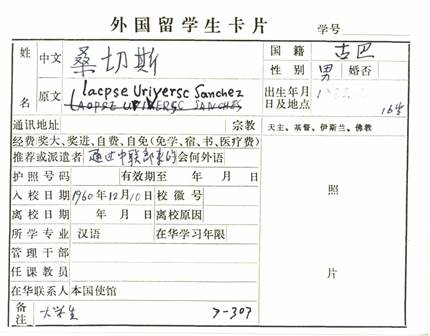 外国留学生卡片 学号
姓名 中文 桑切斯 国籍 古巴
性别 男 婚否
原文 lacpse Uriyersc Sanchez 出生年月日及地点
LAOPSE SANCHES
通讯地址 宗教 天主、基督、伊斯兰、佛教
经费奖大、奖进、自费、自免(免学、宿、书、医疗费)
推荐或派遣者 通过中联部来的 会何外语
护照号码 有效期至 年 月 日
入校日期 1960年12月10日 校徽号
离校日期 年 月 日 离校原因
所学专业 汉语 在华学习年限
管理干部
任课教员
在华联系人本国使馆
备注 大学生 7-307
照片